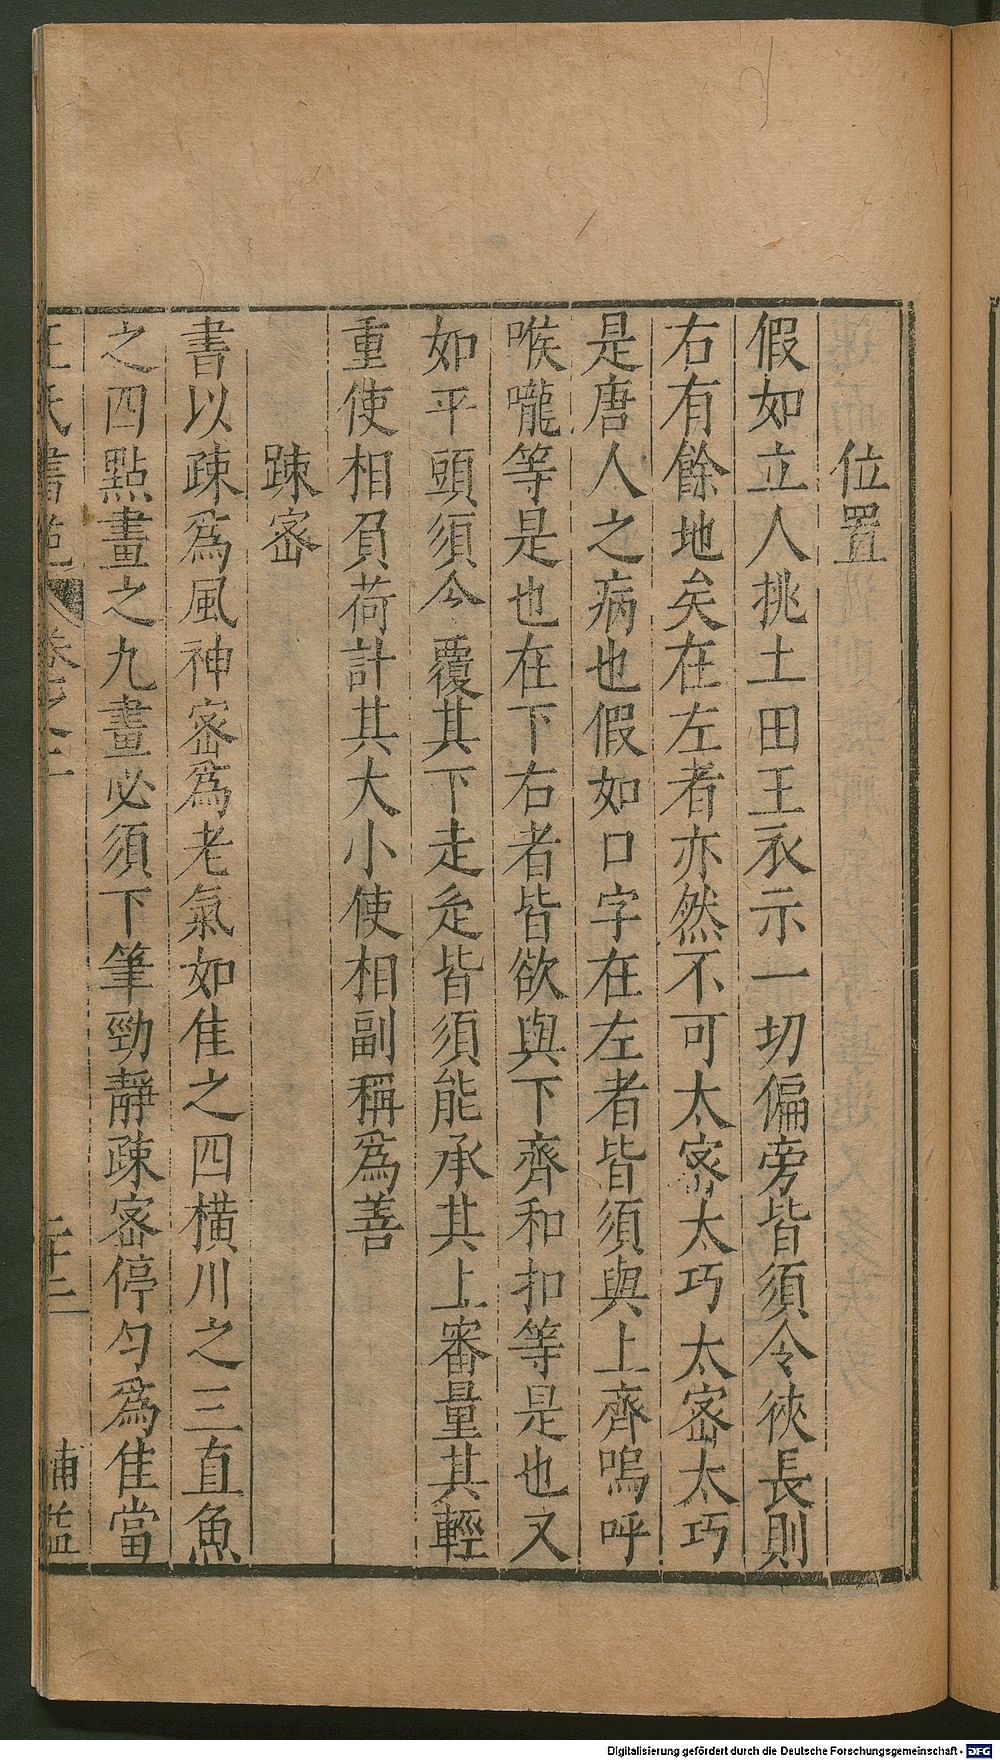 位置
假如立人挑土田王衣示一切偏旁皆須令狹長則
右有餘地矣在左者亦然不可太密太巧太密太巧
是唐人之病也假如口字在左者皆須與上齊嗚呼
喉嚨等是也在下右者皆欲與下齊和扣等是也又
如平頭須今覆其下走辵皆須能承其上審量其輕
重使相負荷計其大小使相副稱爲善
踈密
書以疎爲風神密爲老氣如隹之四橫川之三直魚
之四點畫之九畫必須下筆勁靜疎密停勻爲隹當
王氏書苑 卷之二 二十二 補益
Digitalisierung gefördert durch die Deutsche Forschungsgemeinschaft - DFG